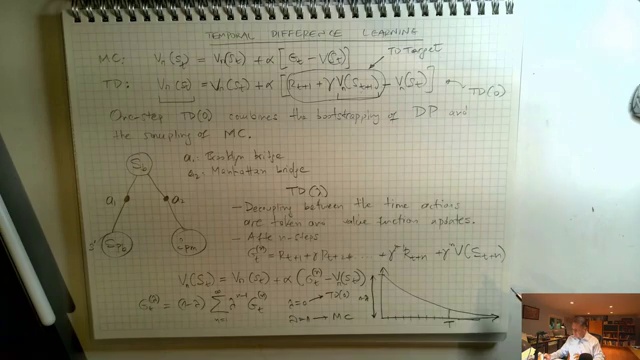 TEMPORAL DIFFERENCE LEARNING
MC: Vπ(St) = Vπ(St) + α [Gt − V(St)]
TD Target
TD: Vπ(St) = Vπ(St) + α [Rt+1 + γ Vπ(St+1) − Vπ(St)]
TD(0)
One-step TD(0) combines the bootstrapping of DP and
the sampling of MC.
a1: Brooklyn bridge
a2: Manhattan bridge
TD(λ)
a1 a2
- Decoupling between the time actions
are taken and value function updates.
- After n-steps
Vπ(St) = Vπ(St) + α (
λ=0 → TD(0)
MC
T